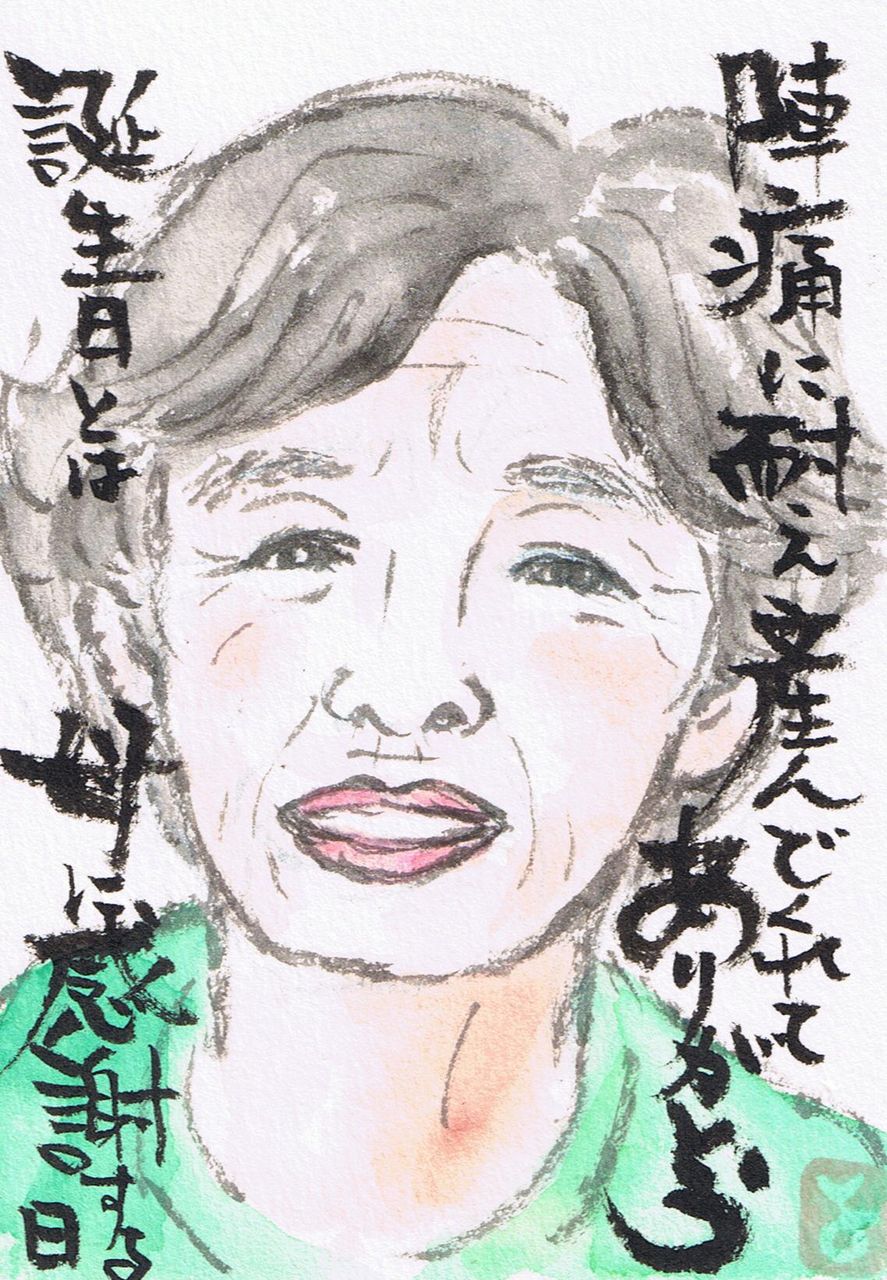 陣痛に耐え産んでくれて
ありがとう
誕生日とは
母に感謝する
日